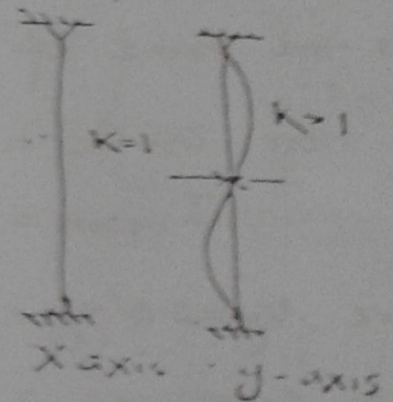 K=1
K>1
X-axis
y-axis